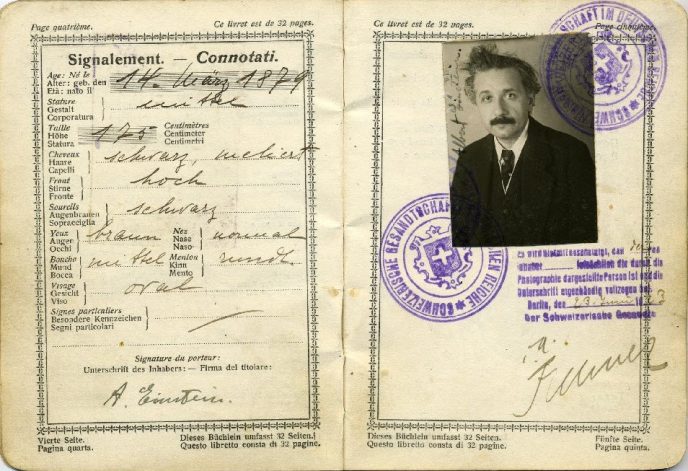 Page quatrième. Ce livret est de 32 pages.
Signalement. — Connotati.
Age: Né le
Alter: geb. den 14. März 1879
Età: nato il
Stature
Gestalt mittel
Corporatura
Taille Centimètres
Höhe 175 Centimeter
Statura Centimetri
Cheveux
Haare schwarz, meliert
Capelli
Front
Stirne hoch
Fronte
Sourcils
Augenbrauen schwarz
Sopracciglia
Yeux Nez
Augen braun Nase normal
Occhi Naso
Bouche Menton
Mund mittel Kinn rundl.
Bocca Mento
Visage
Gesicht oval
Viso
Signes particuliers
Besondere Kennzeichen
Segni particolari
Signature du porteur:
Unterschrift des Inhabers: — Firma del titolare:
A. Einstein.
Vierte Seite. Dieses Büchlein umfasst 32 Seiten.
Pagina quarta. Questo libretto consta di 32 pagine.
Ce livret est de 32 pages. Page cinquième.
SCHWEIZERISCHE GESANDTSCHAFT IM DEUTSCHEN REICHE
Albert Einstein
SCHWEIZERISCHE GESANDTSCHAFT IM DEUTSCHEN REICHE
Es wird hiermit bescheinigt, dass der
Inhaber die durch die
Photographie dargestellte Person ist und die
Unterschrift eigenhändig vollzogen hat.
Berlin, den 23. Juni
Der Schweizerische Gesandte
Dieses Büchlein umfasst 32 Seiten. Fünfte Seite.
Questo libretto consta di 32 pagine. Pagina quinta.